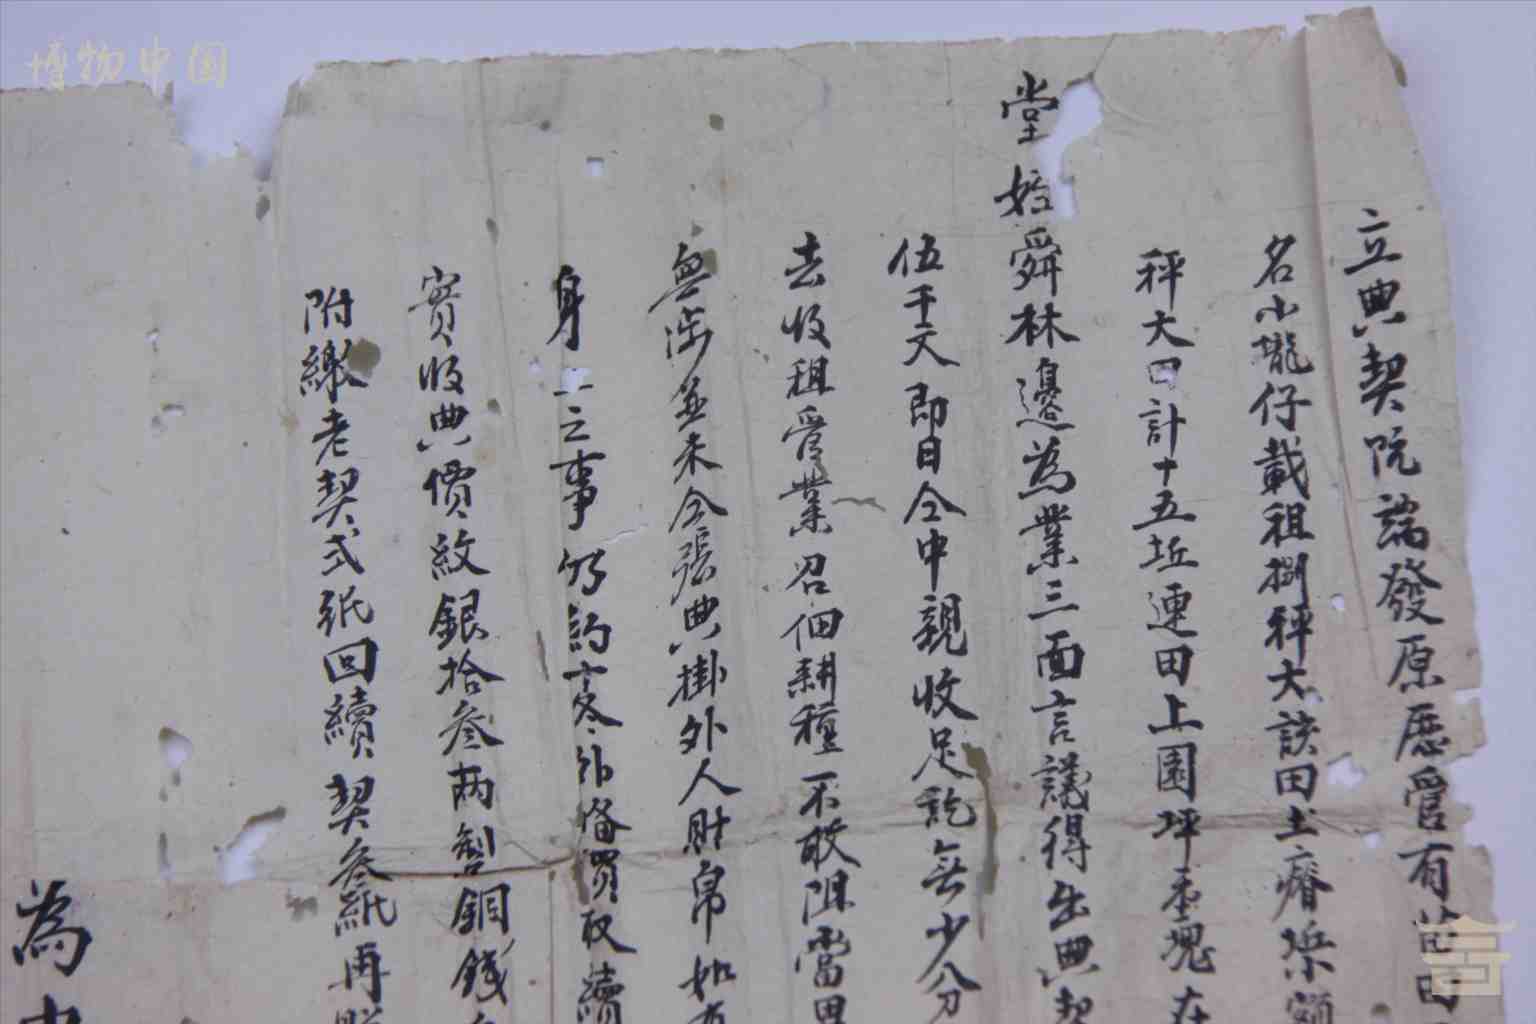 立典契阮端發原歷管有苗田
名小壠仔載租捌秤大該田土瘠
秤大田計十五坵連田上園坪壹塊在
堂姪舜林邊為業三面言議得出典契
伍千文即日仝中親收足訖無少分
去收租管業召佃耕種不敢阻當田
無涉並未仝張典掛外人財帛如有
身之事仍約冬外備買取續
實收典價紋銀拾叁兩製銅錢
附繳老契弍紙回續契叁紙再照
為
博物中国